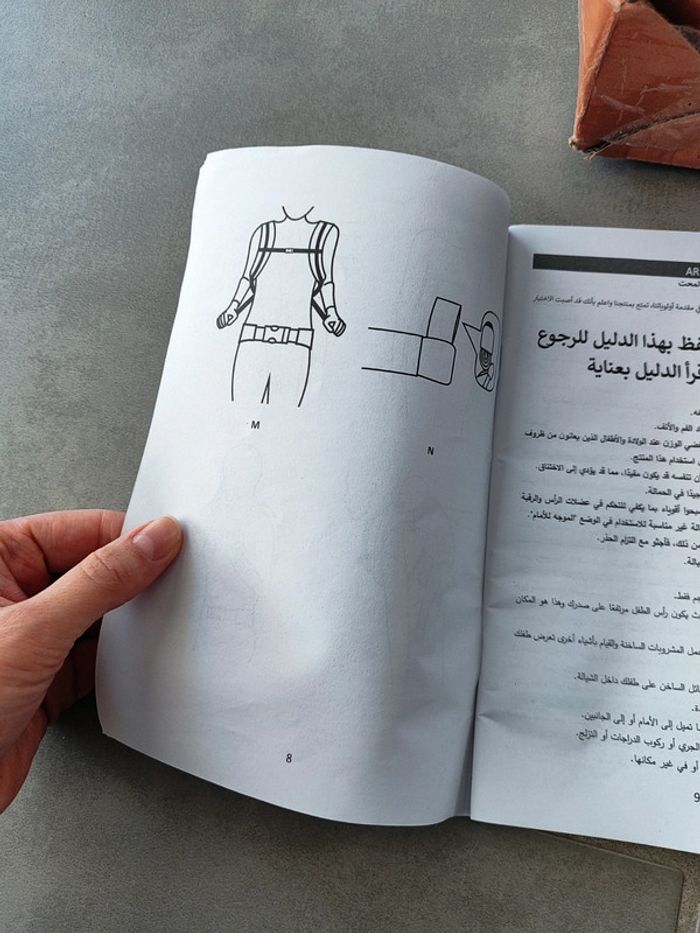 M
N
8
AR
في مقدمة أولوياتك، تمتع بمنتجنا واعلم بأنك قد أصبت الاختيار
بهذا الدليل للرجوع
الدليل بعناية
الفم والأنف.
الوزن عند الولادة والأطفال الذين يعانون من ظروف
استخدام هذا المنتج.
تنفسه قد يكون مقيدًا، مما قد يؤدي إلى الاختناق.
في الحمالة.
أقوياء بما يكفي للتحكم في عضلات الرأس والرقبة
غير مناسبة للاستخدام في الوضع "الموجه للأمام".
ذلك، فاجثو مع التزام الحذر.
فقط.
يكون رأس الطفل مرتفعًا على صدرك وهذا هو المكان
المشروبات الساخنة والقيام بأشياء أخرى تعرض طفلك
الساخن على طفلك داخل الشيالة.
تميل إلى الأمام أو إلى الجانبين.
الجري أو ركوب الدراجات أو التزلج.
أو في غير مكانها.
9